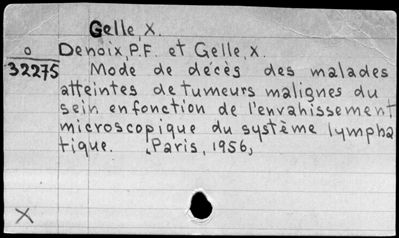 Gelle, X.
o Denoix, P.F. et Gelle, X.
32275 Mode de décès des malades
atteintes de tumeurs malignes du
sein en fonction de l'envahissement
microscopique du système lympha
tique. [Paris, 1956,
X